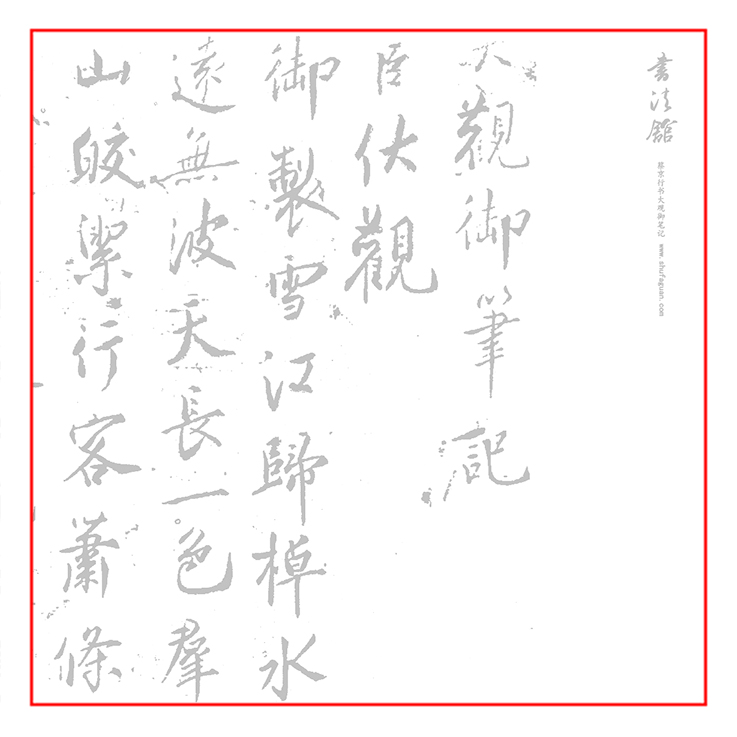 書法館
蔡京行书大观御笔记 www.shufaguan.com
大觀御筆記
臣伏觀
御製雪江歸棹水
遠無波天長一色羣
山皎潔行客蕭條